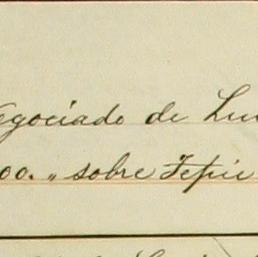 egociado de Lu
00. „ sobre Tepic